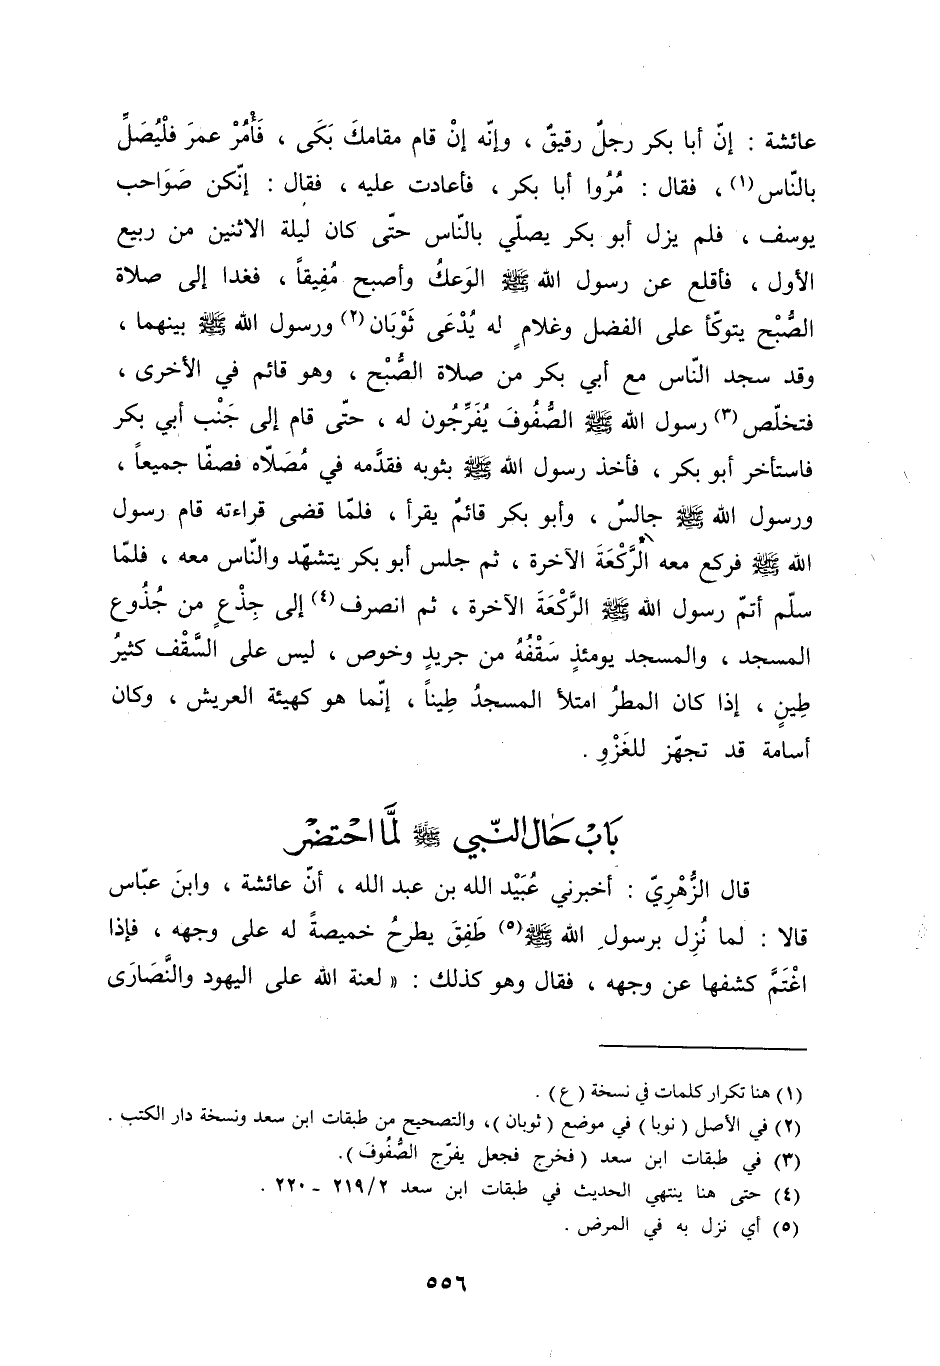 عائشة : إنّ أبا بكر رجلٌ رقيقٌ ، وإنّه إنْ قام مقامكَ بَكَى ، فَأْمُرْ عمرَ فلْيُصَلِّ
بالنّاس(١) ، فقال : مُرُوا أبا بكر ، فأعادت عليه ، فقال : إنّكن صَوَاحب
يوسف ، فلم يزل أبو بكر يصلّي بالنّاس حتّى كان ليلة الاثنين من ربيع
الأول ، فأقلع عن رسول الله ﷺ الوَعكُ وأصبح مُفِيقاً ، فغدا إلى صلاة
الصُّبْح يتوكّأ على الفضل وغلامٍ له يُدْعَى ثَوْبَان(٢) ورسول الله ﷺ بينهما ،
وقد سجد النّاس مع أبي بكر من صلاة الصُّبْح ، وهو قائم في الأخرى ،
فتخلّص(٣) رسول الله ﷺ الصُّفُوفَ يُفَرِّجُون له ، حتّى قام إلى جَنْب أبي بكر
فاستأخر أبو بكر ، فأخذ رسول الله ﷺ بثوبه فقدَّمه في مُصَلاّه فصفّا جميعاً ،
ورسول الله ﷺ جالسٌ ، وأبو بكر قائمٌ يقرأ ، فلمّا قضى قراءته قام رسول
الله ﷺ فركع معه الرَّكْعَةَ الآخرة ، ثم جلس أبو بكر يتشهّد والنّاس معه ، فلمّا
سلّم أتمّ رسول الله ﷺ الرَّكْعَةَ الآخرة ، ثم انصرف(٤) إلى جِذْعٍ من جُذُوع
المسجد ، والمسجد يومئذٍ سَقْفُهُ من جريدٍ وخوص ، ليس على السَّقْف كثيرُ
طِينٍ ، إذا كان المطرُ امتلأ المسجدُ طِيناً ، إنّما هو كهيئة العريش ، وكان
أسامة قد تجهّز للغَزْوِ .
بَابُ حَال النّبي ﷺ لمَّا احْتضرَ
قال الزُّهْرِيّ : أخبرني عُبَيْد الله بن عبد الله ، أنّ عائشة ، وابنَ عبّاس
قالا : لما نُزِل برسولِ الله ﷺ(٥) طَفِقَ يطرحُ خميصةً له على وجهه ، فإذا
اغْتَمَّ كشفها عن وجهه ، فقال وهو كذلك : « لعنة الله على اليهود والنَّصَارَى
(١) هنا تكرار كلمات في نسخة (ع) .
(٢) في الأصل (نوبا) في موضع (ثوبان)، والتصحيح من طبقات ابن سعد ونسخة دار الكتب .
(٣) في طبقات ابن سعد (فخرج فجعل يفرّج الصُّفُوفَ).
(٤) حتى هنا ينتهي الحديث في طبقات ابن سعد ٢١٩/٢ - ٢٢٠ .
(٥) أي نزل به في المرض .
٥٥٦